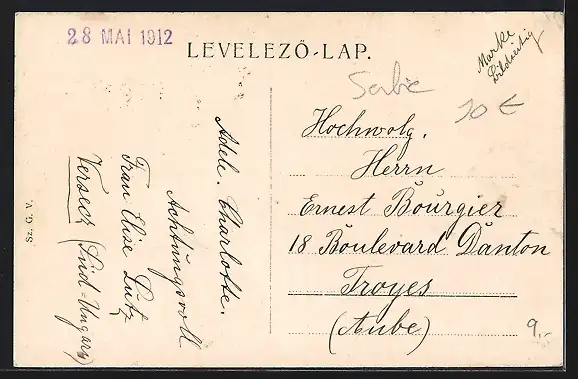 28 MAI 1912
LEVELEZŐ-LAP.
Marke
Bildseitig
Serbie
10 €
Hochwolg.
Herrn
Ernest Bourgier
18 Boulevard Danton
Troyes
(Aube)
9,-
Adele. Charlotte.
Achtungsvoll
Frau Elise Lutz
Versecz (Süd-Ungarn)
Sz. G. V.